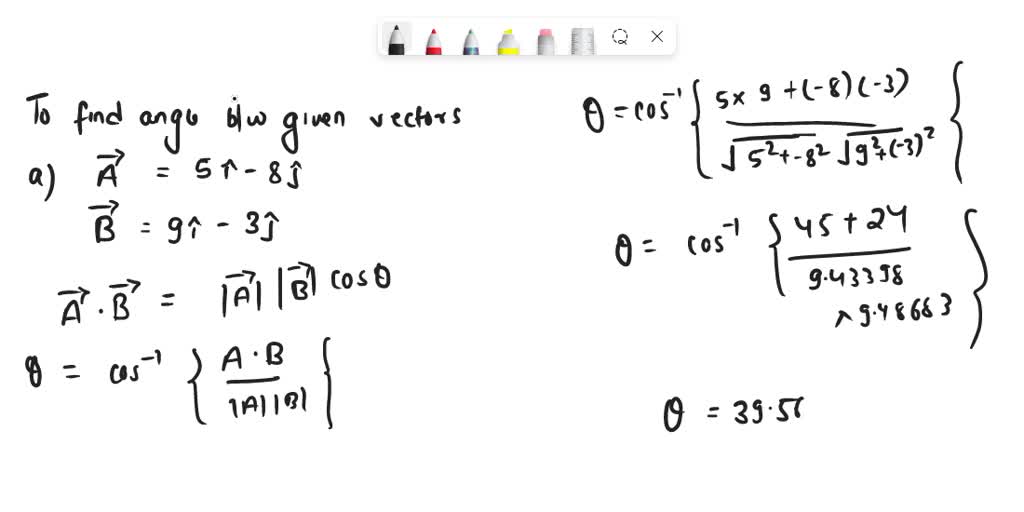 To find ange b/w given vectors
a) A⃗ = 5î - 8ĵ
B⃗ = 9î - 3ĵ
A⃗ . B⃗ = |A⃗| |B⃗| cosθ
θ = cos⁻¹ { A · B / |A| |B| }
θ = cos⁻¹ { 5x 9 + (-8) (-3) / √5²+-8² √9²+(-3)² }
θ = cos⁻¹ { 45 + 24 / 9.43398 × 9.48683 }
θ = 39.5